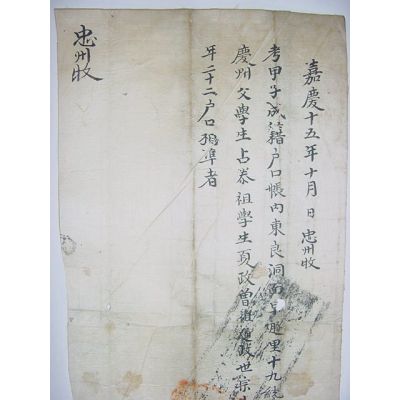 嘉慶十五年十月 日 忠州牧
考甲子成籍户口帳內東良洞面 里十九統
慶州父學生占 祖學生 政曾祖通政世宗
年二十二户口 準者
忠州牧